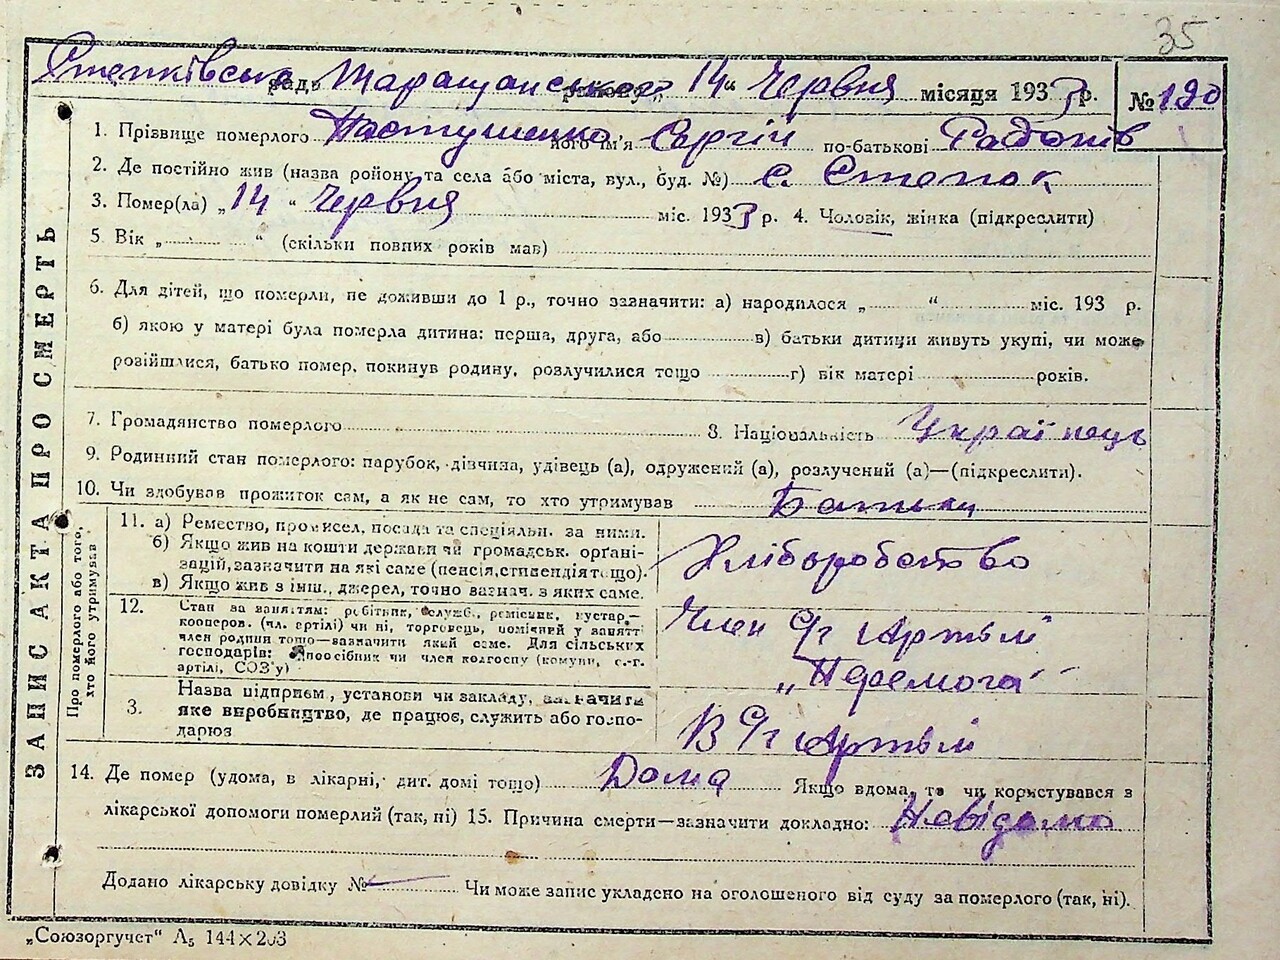 35
Степківська рада Таращанського району „14“ Червня місяця 1933 р. № 190
1. Прізвище померлого Пастушенко його ім'я Сергій по-батькові Радонів
2. Де постійно жив (назва ройону та села або міста, вул., буд. №) с. Степок
3. Помер(ла) „14“ Червня міс. 1933 р. 4. Чоловік, жінка (підкреслити)
5. Вік „ “ (скільки повних років мав)
6. Для дітей, що померли, не доживши до 1 р., точно зазначити: а) народилося „ “ міс. 193 р.
б) якою у матері була померла дитина: перша, друга, або в) батьки дитини живуть укупі, чи може
розійшлися, батько помер, покинув родину, розлучилися тощо г) вік матері років.
7. Громадянство померлого 8. Національність Українець
9. Родинний стан померлого: парубок, дівчина, удівець (а), одружений (а), розлучений (а)—(підкреслити).
10. Чи здобував прожиток сам, а як не сам, то хто утримував Батьки
ЗАПИС АКТА ПРО СМЕРТЬ
Про померлого або того, хто його утримував
11. а) Ремество, промисел, посада та спеціяльн. за ними.
б) Якщо жив на кошти держави чи громадськ. орґані-
зацій, зазначити на які саме (пенсія, стипендія тощо).
в) Якщо жив з інш. джерел, точно зазнач. з яких саме.
Хліборобство
12. Стан за заняттям: робітник, служб., ремісник, кустар,—
кооперов. (чл. артілі) чи ні, торговець, помічний у занятті
член родини тощо—зазначити який саме. Для сільських
господарів: одноосібник чи член колгоспу (комуни, с.-г.
артілі, СОЗ'у)
Член с/г Артілі
„Перемога“
3. Назва підприєм., установи чи закладу, зазначити
яке виробництво, де працює, служить або госпо-
дарює
В с/г Артілі
14. Де помер (удома, в лікарні, дит. домі тощо) Дома Якщо вдома, то чи користувався з
лікарської допомоги померлий (так, ні) 15. Причина смерти—зазначити докладно: Невідома
Додано лікарську довідку № Чи може запис укладено на оголошеного від суду за померлого (так, ні).
„Союзоргучет“ А5 144×203